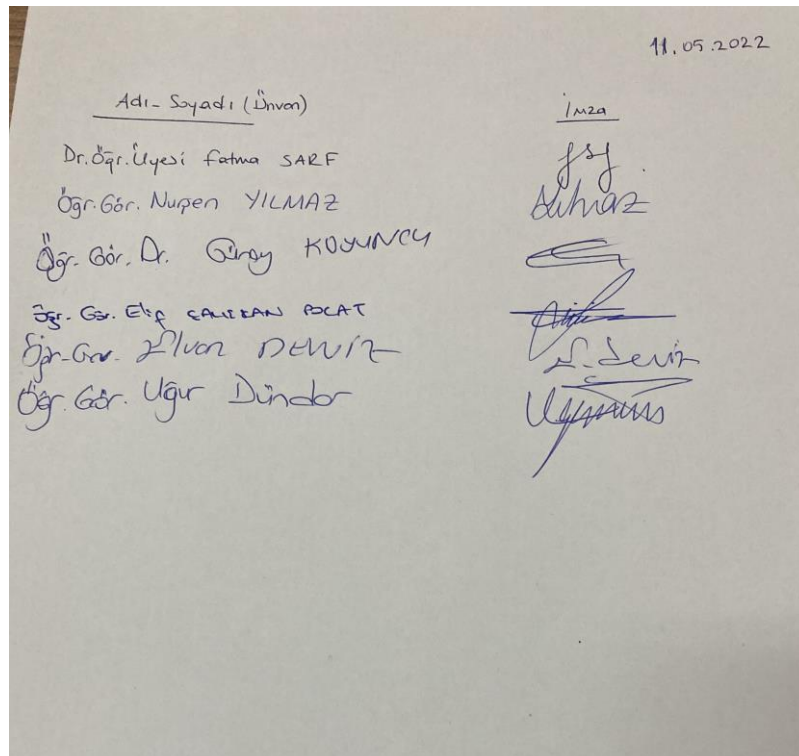 11.05.2022
Adı-Soyadı (Ünvan) İmza
Dr. Öğr. Üyesi Fatma SARF
Öğr. Gör. Nurşen YILMAZ Yılmaz
Öğr. Gör. Dr. Güray KOYUNCU
Öğr. Gör. Elif ÇALIŞKAN POLAT
Öğr. Gör. Elvan DENİZ E. Deniz
Öğr. Gör. Uğur Dündar